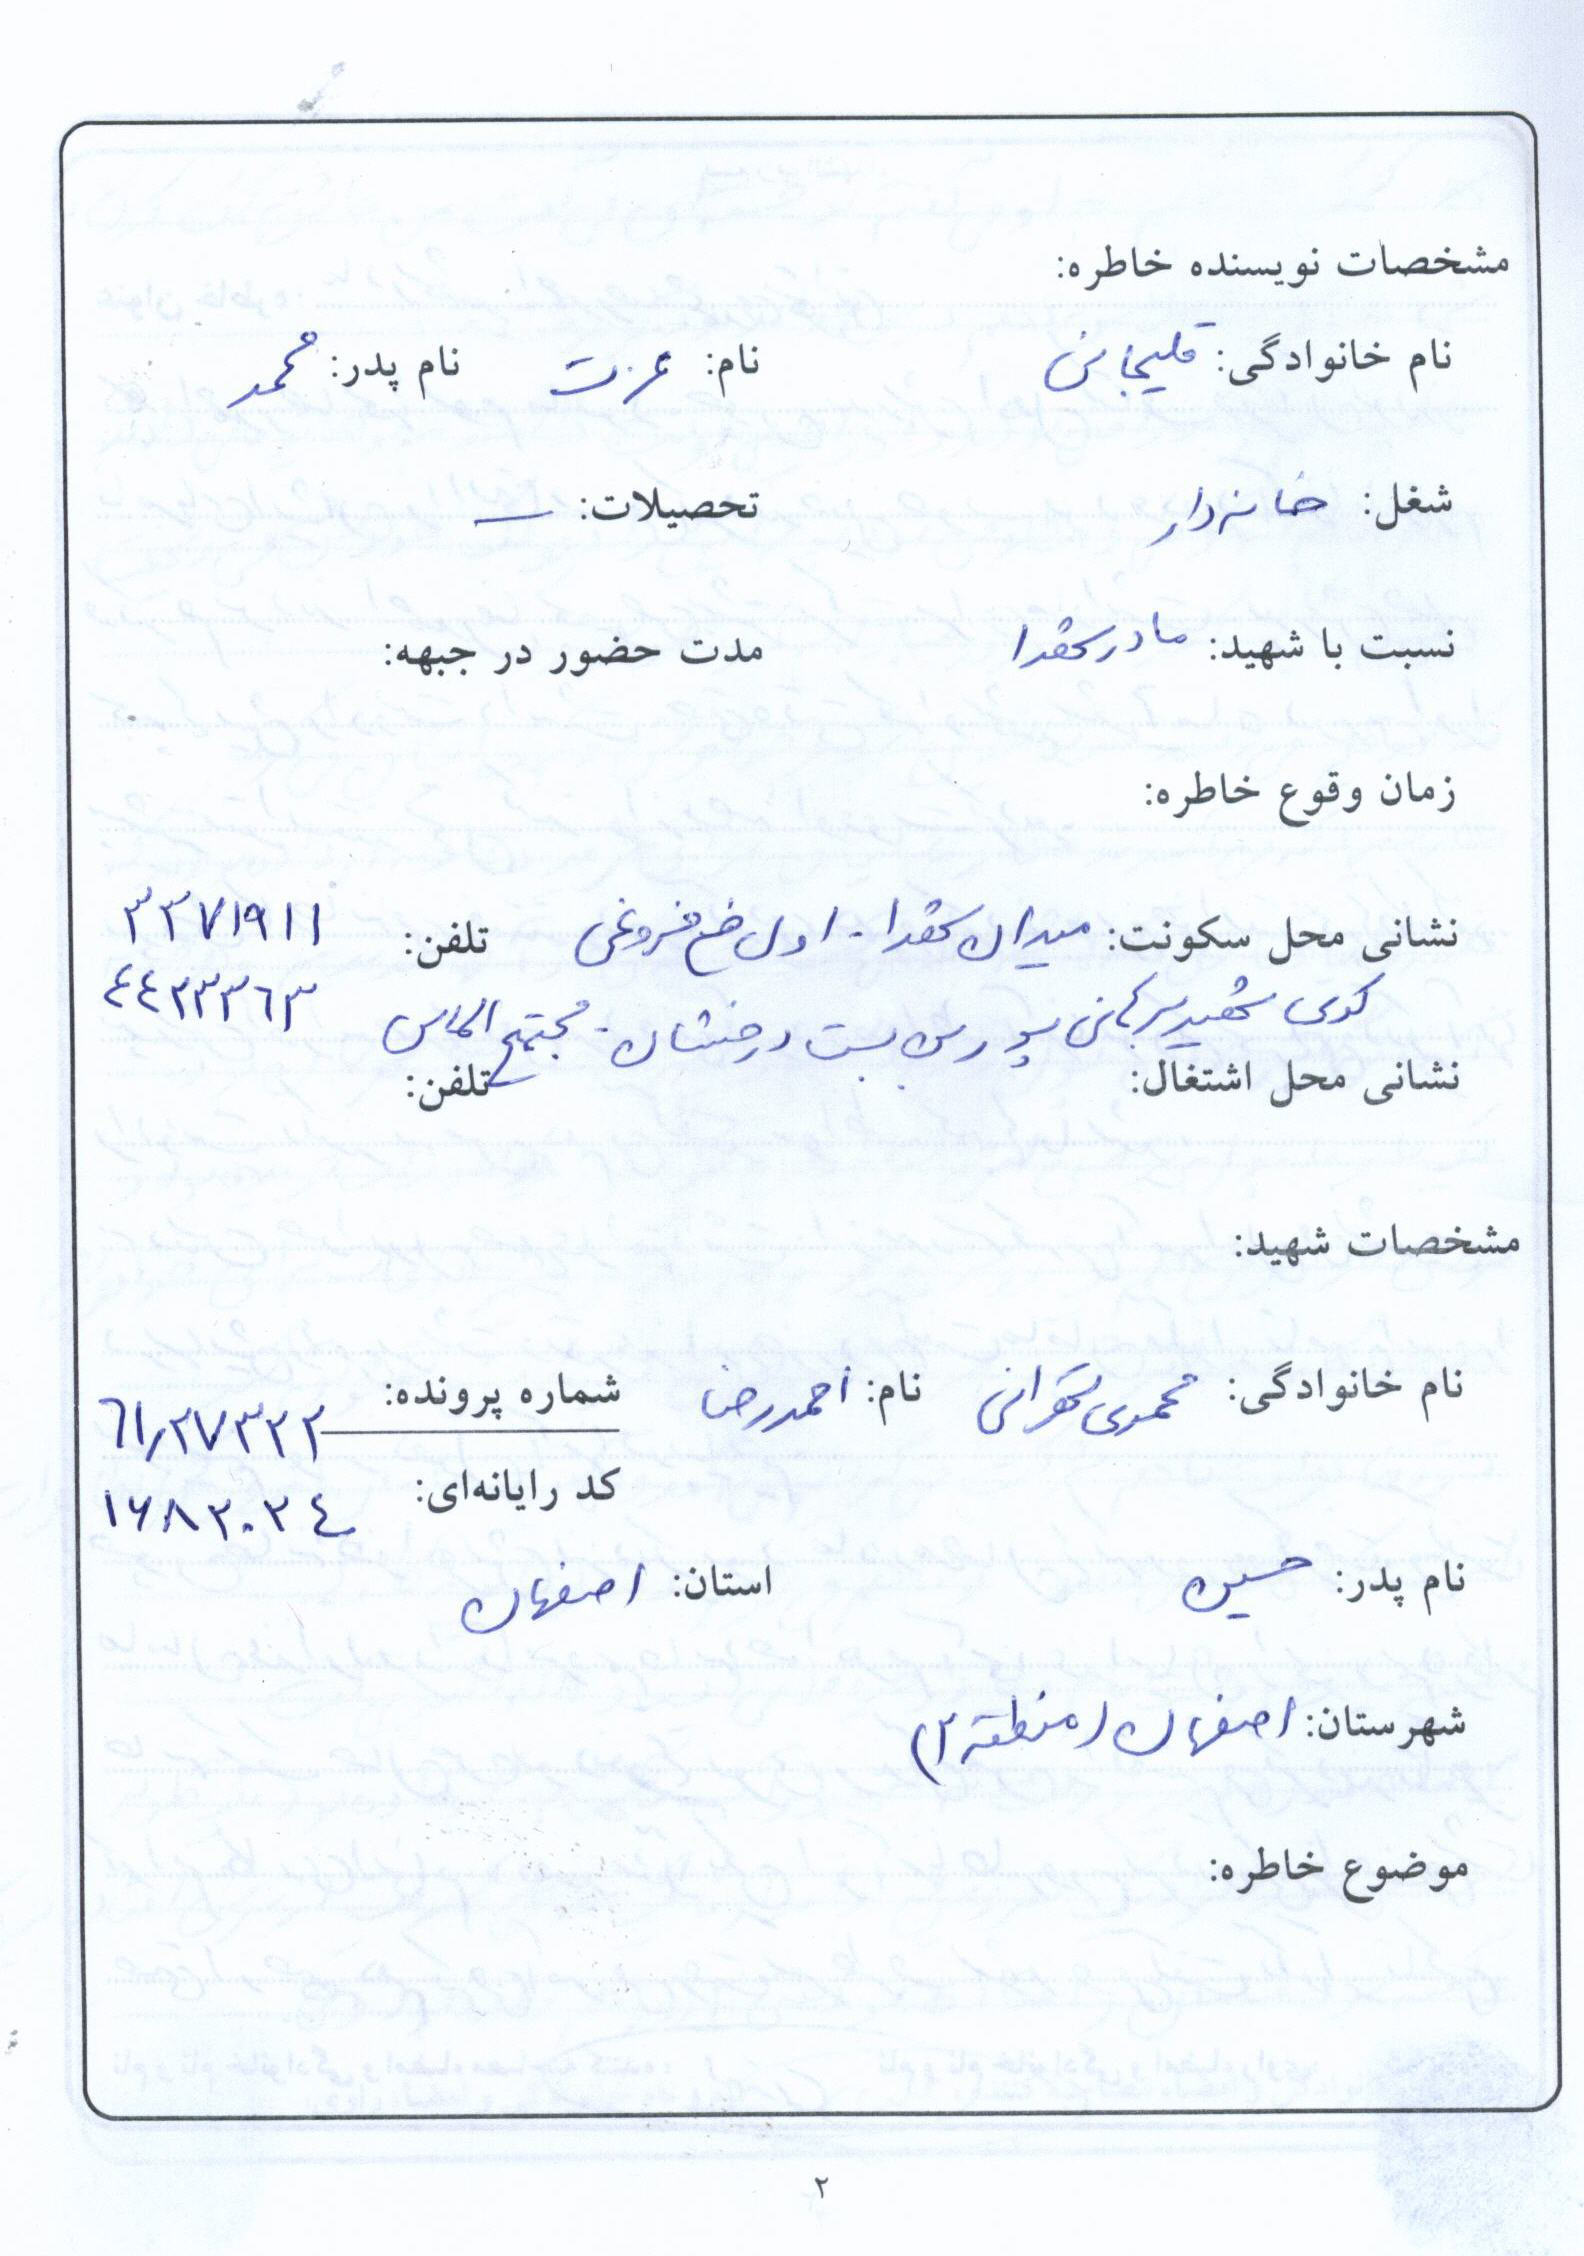 مشخصات نویسنده خاطره:
نام خانوادگی: قلیچانی نام: عزت نام پدر: محمد
شغل: خانه‌دار تحصیلات: ـــ
نسبت با شهید: مادر شهدا مدت حضور در جبهه:
زمان وقوع خاطره:
نشانی محل سکونت: میدان شهدا - اول خ فروغی تلفن: ۳۳۷۱۹۱۱
کوی شهید بن بست درخشان - مجتمع الماس ۴۴۲۳۳۶۳
نشانی محل اشتغال: تلفن:
مشخصات شهید:
نام خانوادگی: محمدی تهرانی نام: احمدرضا شماره پرونده: ۶۱٫۲۷۳۲۲
کد رایانه‌ای: ۱۶۸۲۰۲۴
نام پدر: حسین استان: اصفهان
شهرستان: اصفهان (منطقه ۲)
موضوع خاطره:
۲